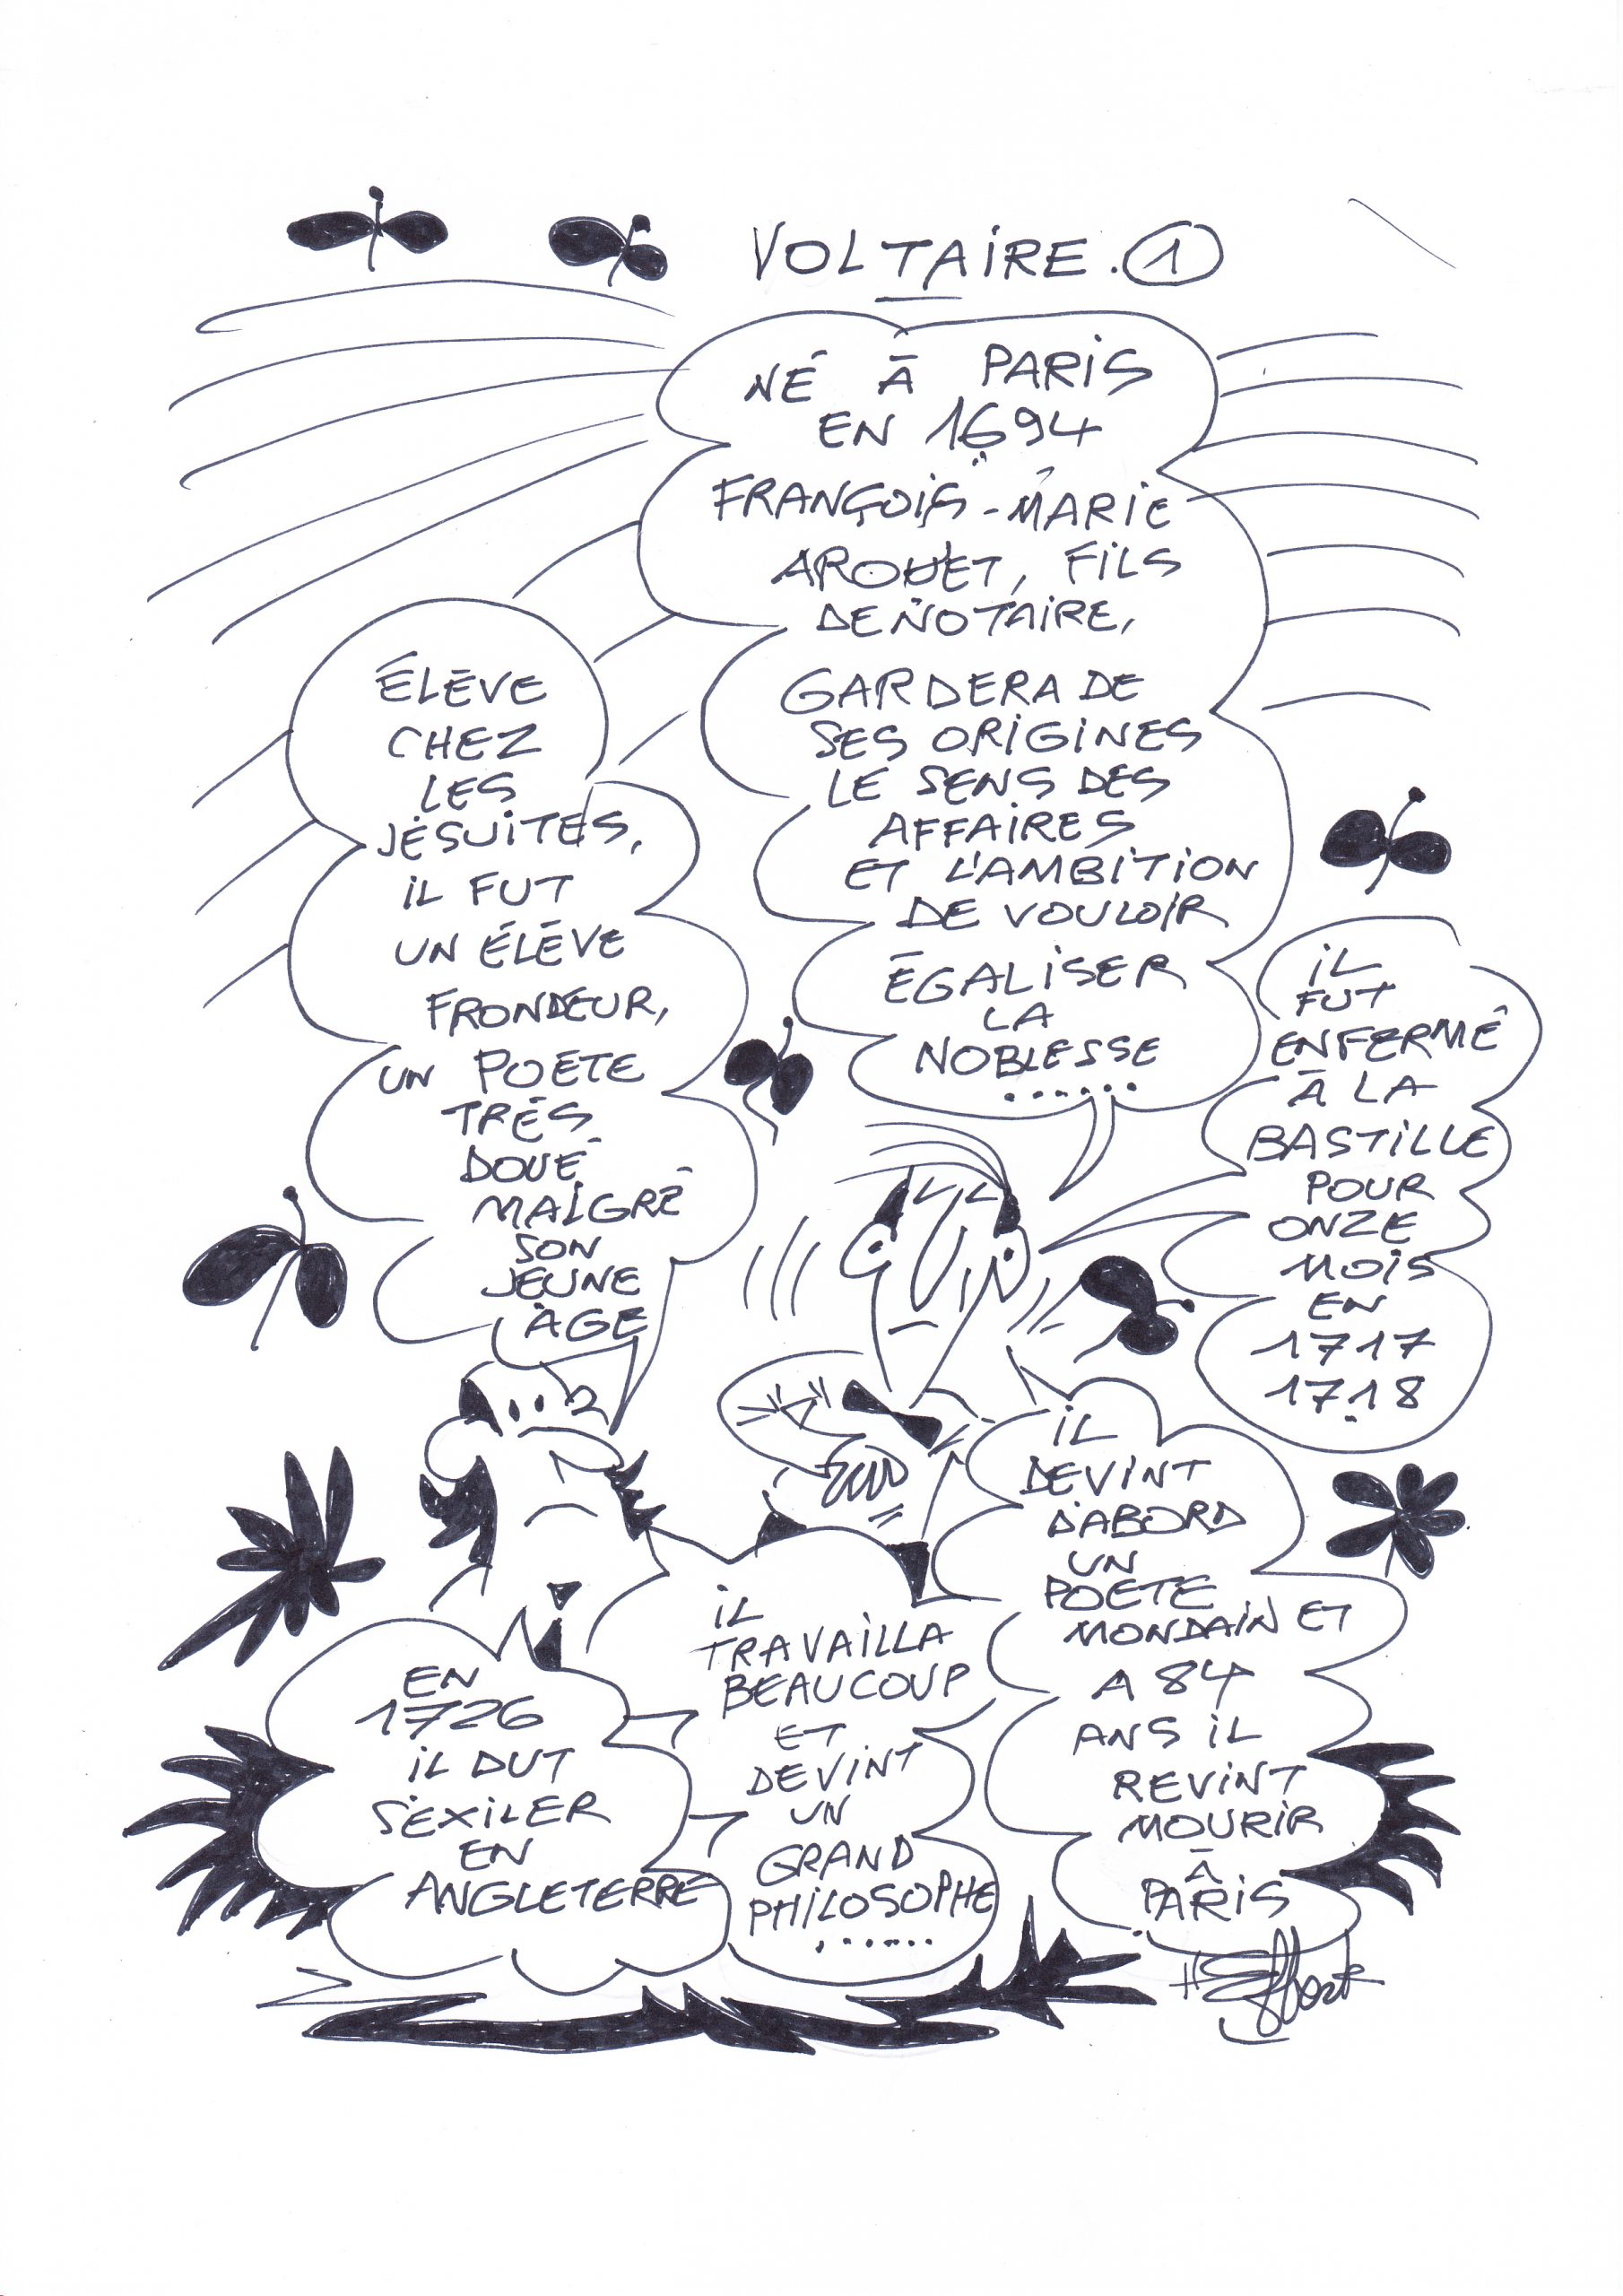 VOLTAIRE. 1
NÉ À PARIS
EN 1694
FRANÇOIS-MARIE
AROUET, FILS
DE NOTAIRE,
GARDERA DE
SES ORIGINES
LE SENS DES
AFFAIRES
ET L'AMBITION
DE VOULOIR
ÉGALISER
LA
NOBLESSE
......
ÉLÈVE
CHEZ
LES
JÉSUITES,
IL FUT
UN ÉLÈVE
FRONDEUR,
UN POETE
TRÉS
DOUÉ
MALGRÉ
SON
JEUNE
ÂGE
IL
FUT
ENFERMÉ
À LA
BASTILLE
POUR
ONZE
MOIS
EN
1717
1718
IL
DEVINT
D'ABORD
UN
POETE
MONDAIN ET
A 84
ANS IL
REVINT
MOURIR
À
PARIS
IL
TRAVAILLA
BEAUCOUP
ET
DEVINT
UN
GRAND
PHILOSOPHE
......
EN
1726
IL DUT
S'EXILER
EN
ANGLETERRE